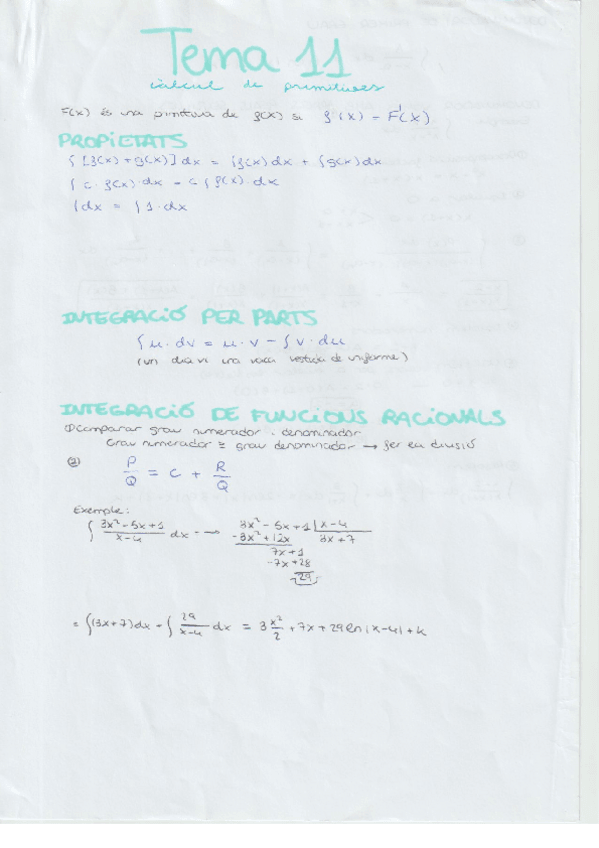 Tema 11
càlcul de primitives
F(x) és una primitiva de f(x) si f(x) = F'(x)
PROPIETATS
∫ [f(x) + g(x)] dx = ∫f(x) dx + ∫g(x) dx
∫ c · f(x) · dx = c ∫ f(x) · dx
∫ dx = ∫ 1 · dx
INTEGRACIÓ PER PARTS
∫ u · dv = u · v - ∫ v · du
(un dia vi una vaca vestida de uniforme)
INTEGRACIÓ DE FUNCIONS RACIONALS
① Comparar grau numerador i denominador
Grau numerador ≥ grau denominador → fer la divisió
② P/Q = C + R/Q
Exemple:
∫ (3x² - 5x + 1)/(x - 4) dx → 3x² - 5x + 1 | x - 4
-3x² + 12x 3x + 7
7x + 1
-7x + 28
29
= ∫(3x + 7) dx + ∫ 29/(x - 4) dx = 3 x²/2 + 7x + 29 ln|x - 4| + k